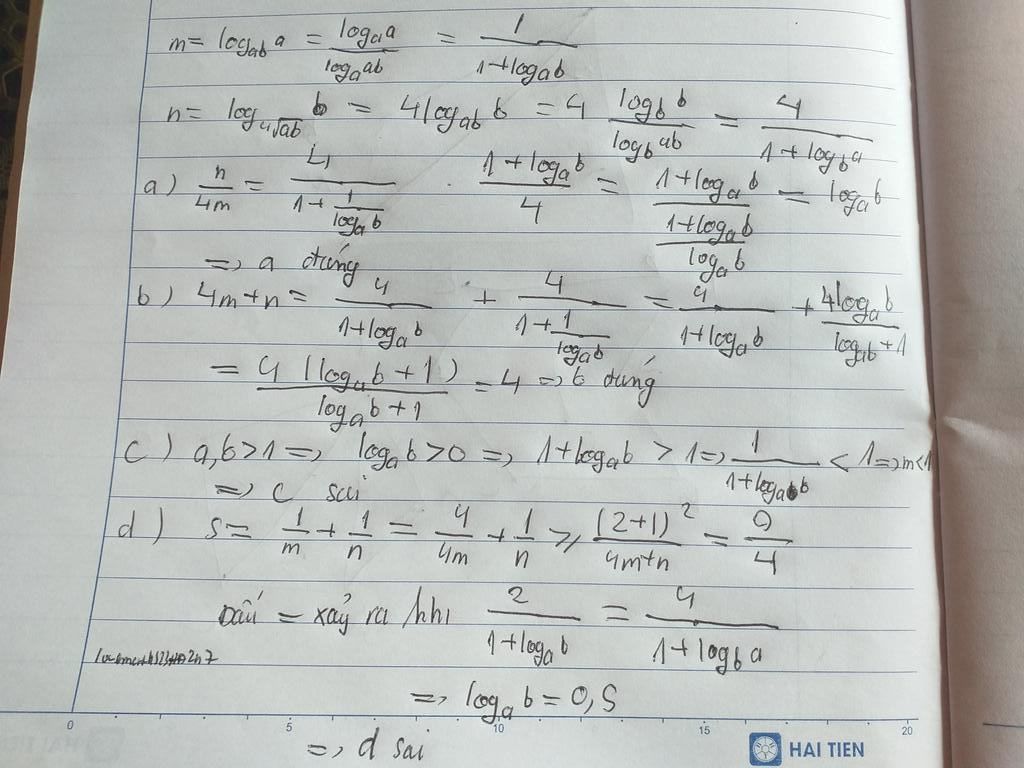 m = log_{ab} a = \frac{log_a a}{log_a ab} = \frac{1}{1+log_a b}
n = log_{4\sqrt{ab}} b = 4log_{ab} b = 4 \frac{log_b b}{log_b ab} = \frac{4}{1+log_b a}
a) \frac{n}{4m} = \frac{4}{1+\frac{1}{log_a b}} . \frac{1+log_a b}{4} = \frac{1+log_a b}{\frac{1+log_a b}{log_a b}} = log_a b
=> a đúng
b) 4m+n = \frac{4}{1+log_a b} + \frac{4}{1+\frac{1}{log_a b}} = \frac{4}{1+log_a b} + \frac{4log_a b}{log_a b+1}
= \frac{4(log_a b+1)}{log_a b+1} = 4 => b đúng
c) a,b>1 => log_a b>0 => 1+log_a b > 1 => \frac{1}{1+log_a b} < 1 => m<1
=> c sai
d) S = \frac{1}{m} + \frac{1}{n} = \frac{4}{4m} + \frac{1}{n} ≥ \frac{(2+1)^2}{4m+n} = \frac{9}{4}
Dấu = xảy ra khi \frac{2}{1+log_a b} = \frac{4}{1+log_b a}
=> log_a b = 0,5
0 5 10 15 20
=> d sai
HAI TIEN